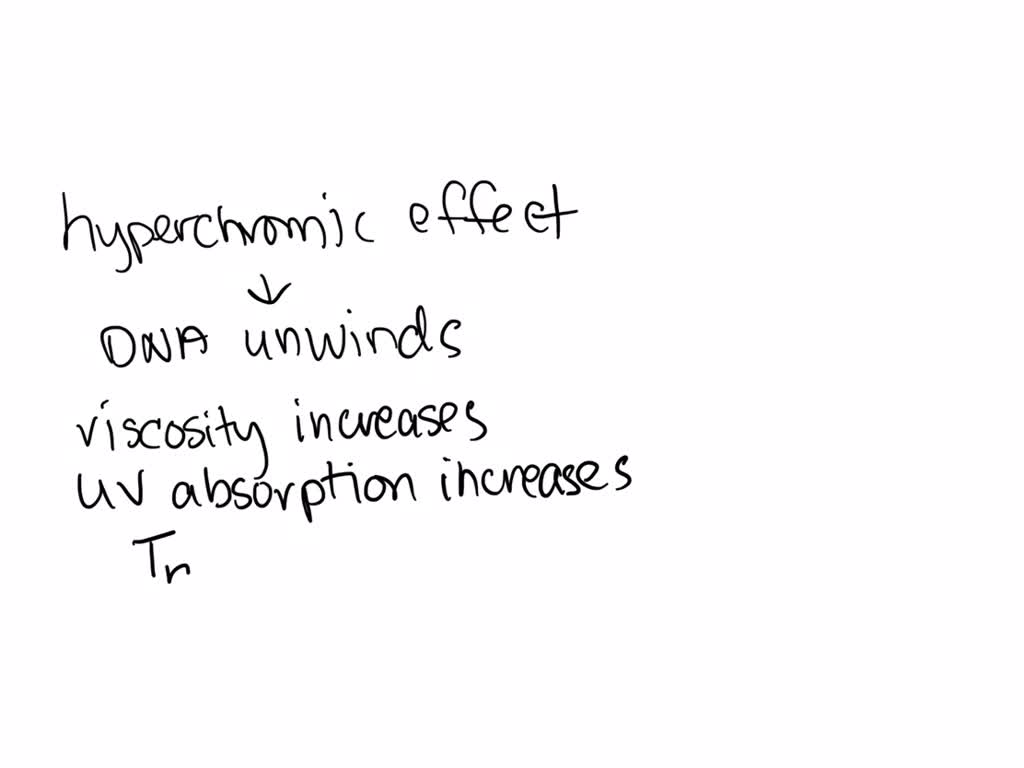 hyperchromic effect
↓
DNA unwinds
viscosity increases
UV absorption increases
Tn